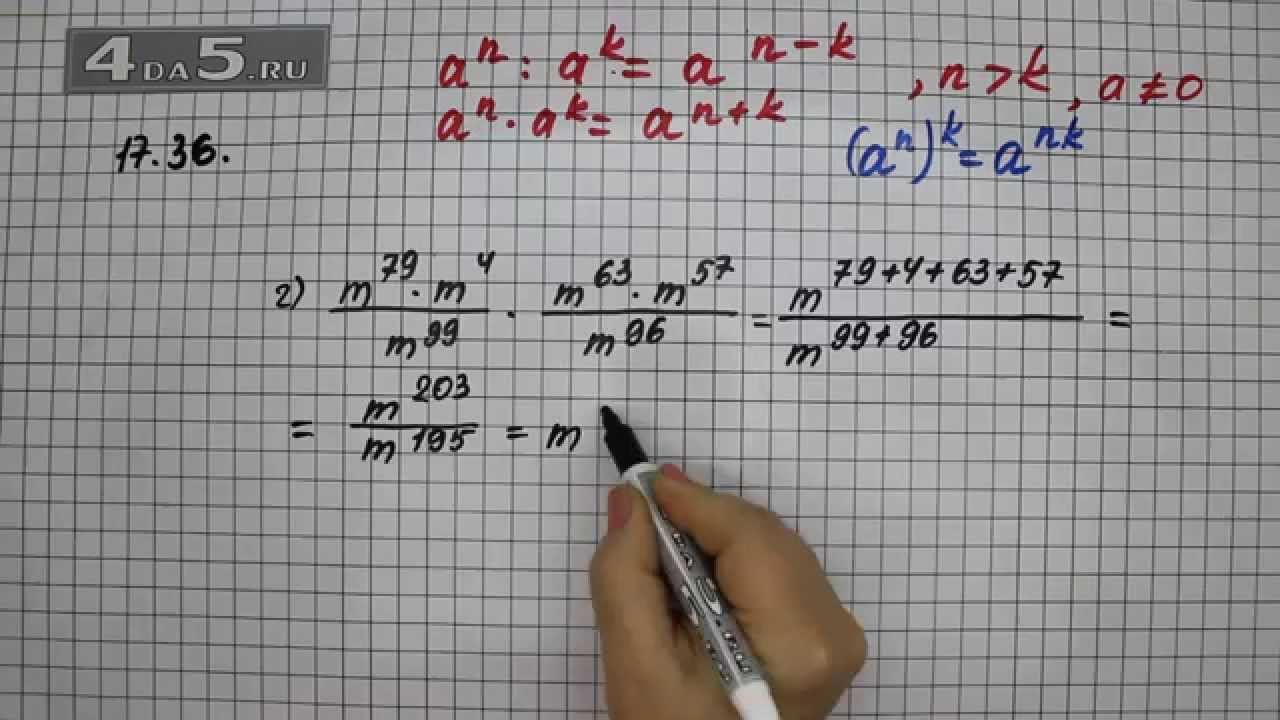 4DA5.RU
aⁿ : aᵏ = aⁿ⁻ᵏ, n > k, a ≠ 0
aⁿ · aᵏ = aⁿ⁺ᵏ
(aⁿ)ᵏ = aⁿᵏ
17.36.
г) (m⁷⁹ · m⁴)/m⁹⁹ · (m⁶³ · m⁵⁷)/m⁹⁶ = m⁷⁹⁺⁴⁺⁶³⁺⁵⁷/m⁹⁹⁺⁹⁶ =
= m²⁰³/m¹⁹⁵ = m